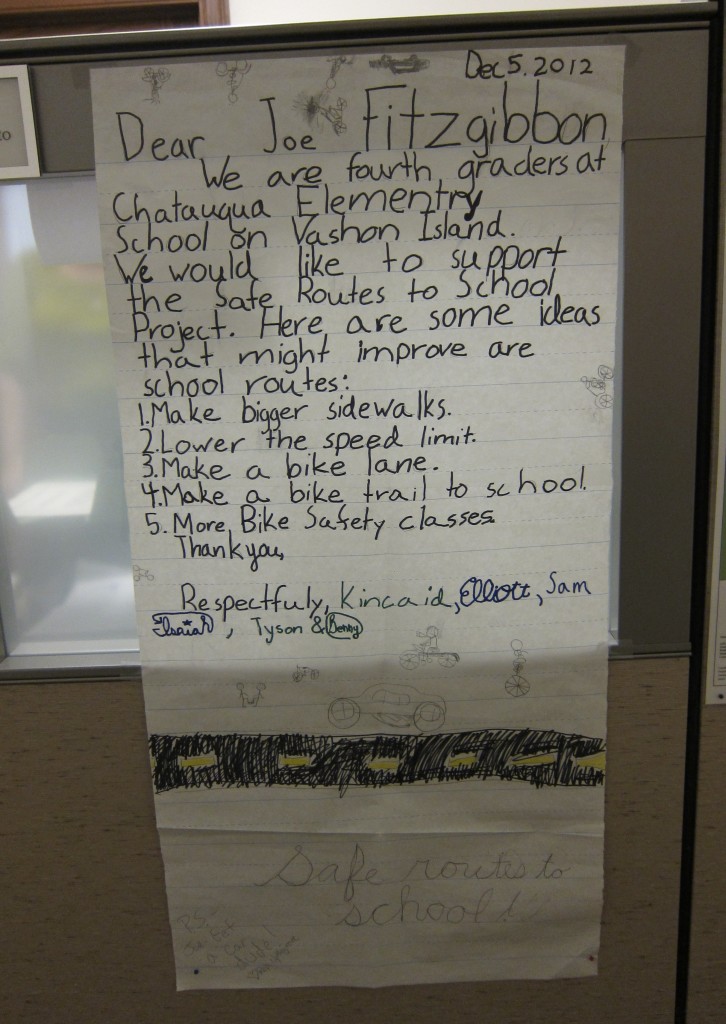 Dec 5. 2012
Dear Joe Fitzgibbon
We are fourth graders at
Chatauqua Elementry
School on Vashon Island.
We would like to support
the Safe Routes to School
Project. Here are some ideas
that might improve are
school routes:
1. Make bigger sidewalks.
2. Lower the speed limit.
3. Make a bike lane.
4. Make a bike trail to school.
5. More Bike Safety classes.
Thank you,
Respectfuly, Kincaid, Elliott, Sam
Isaiah, Tyson & Benny
Safe routes to
school!